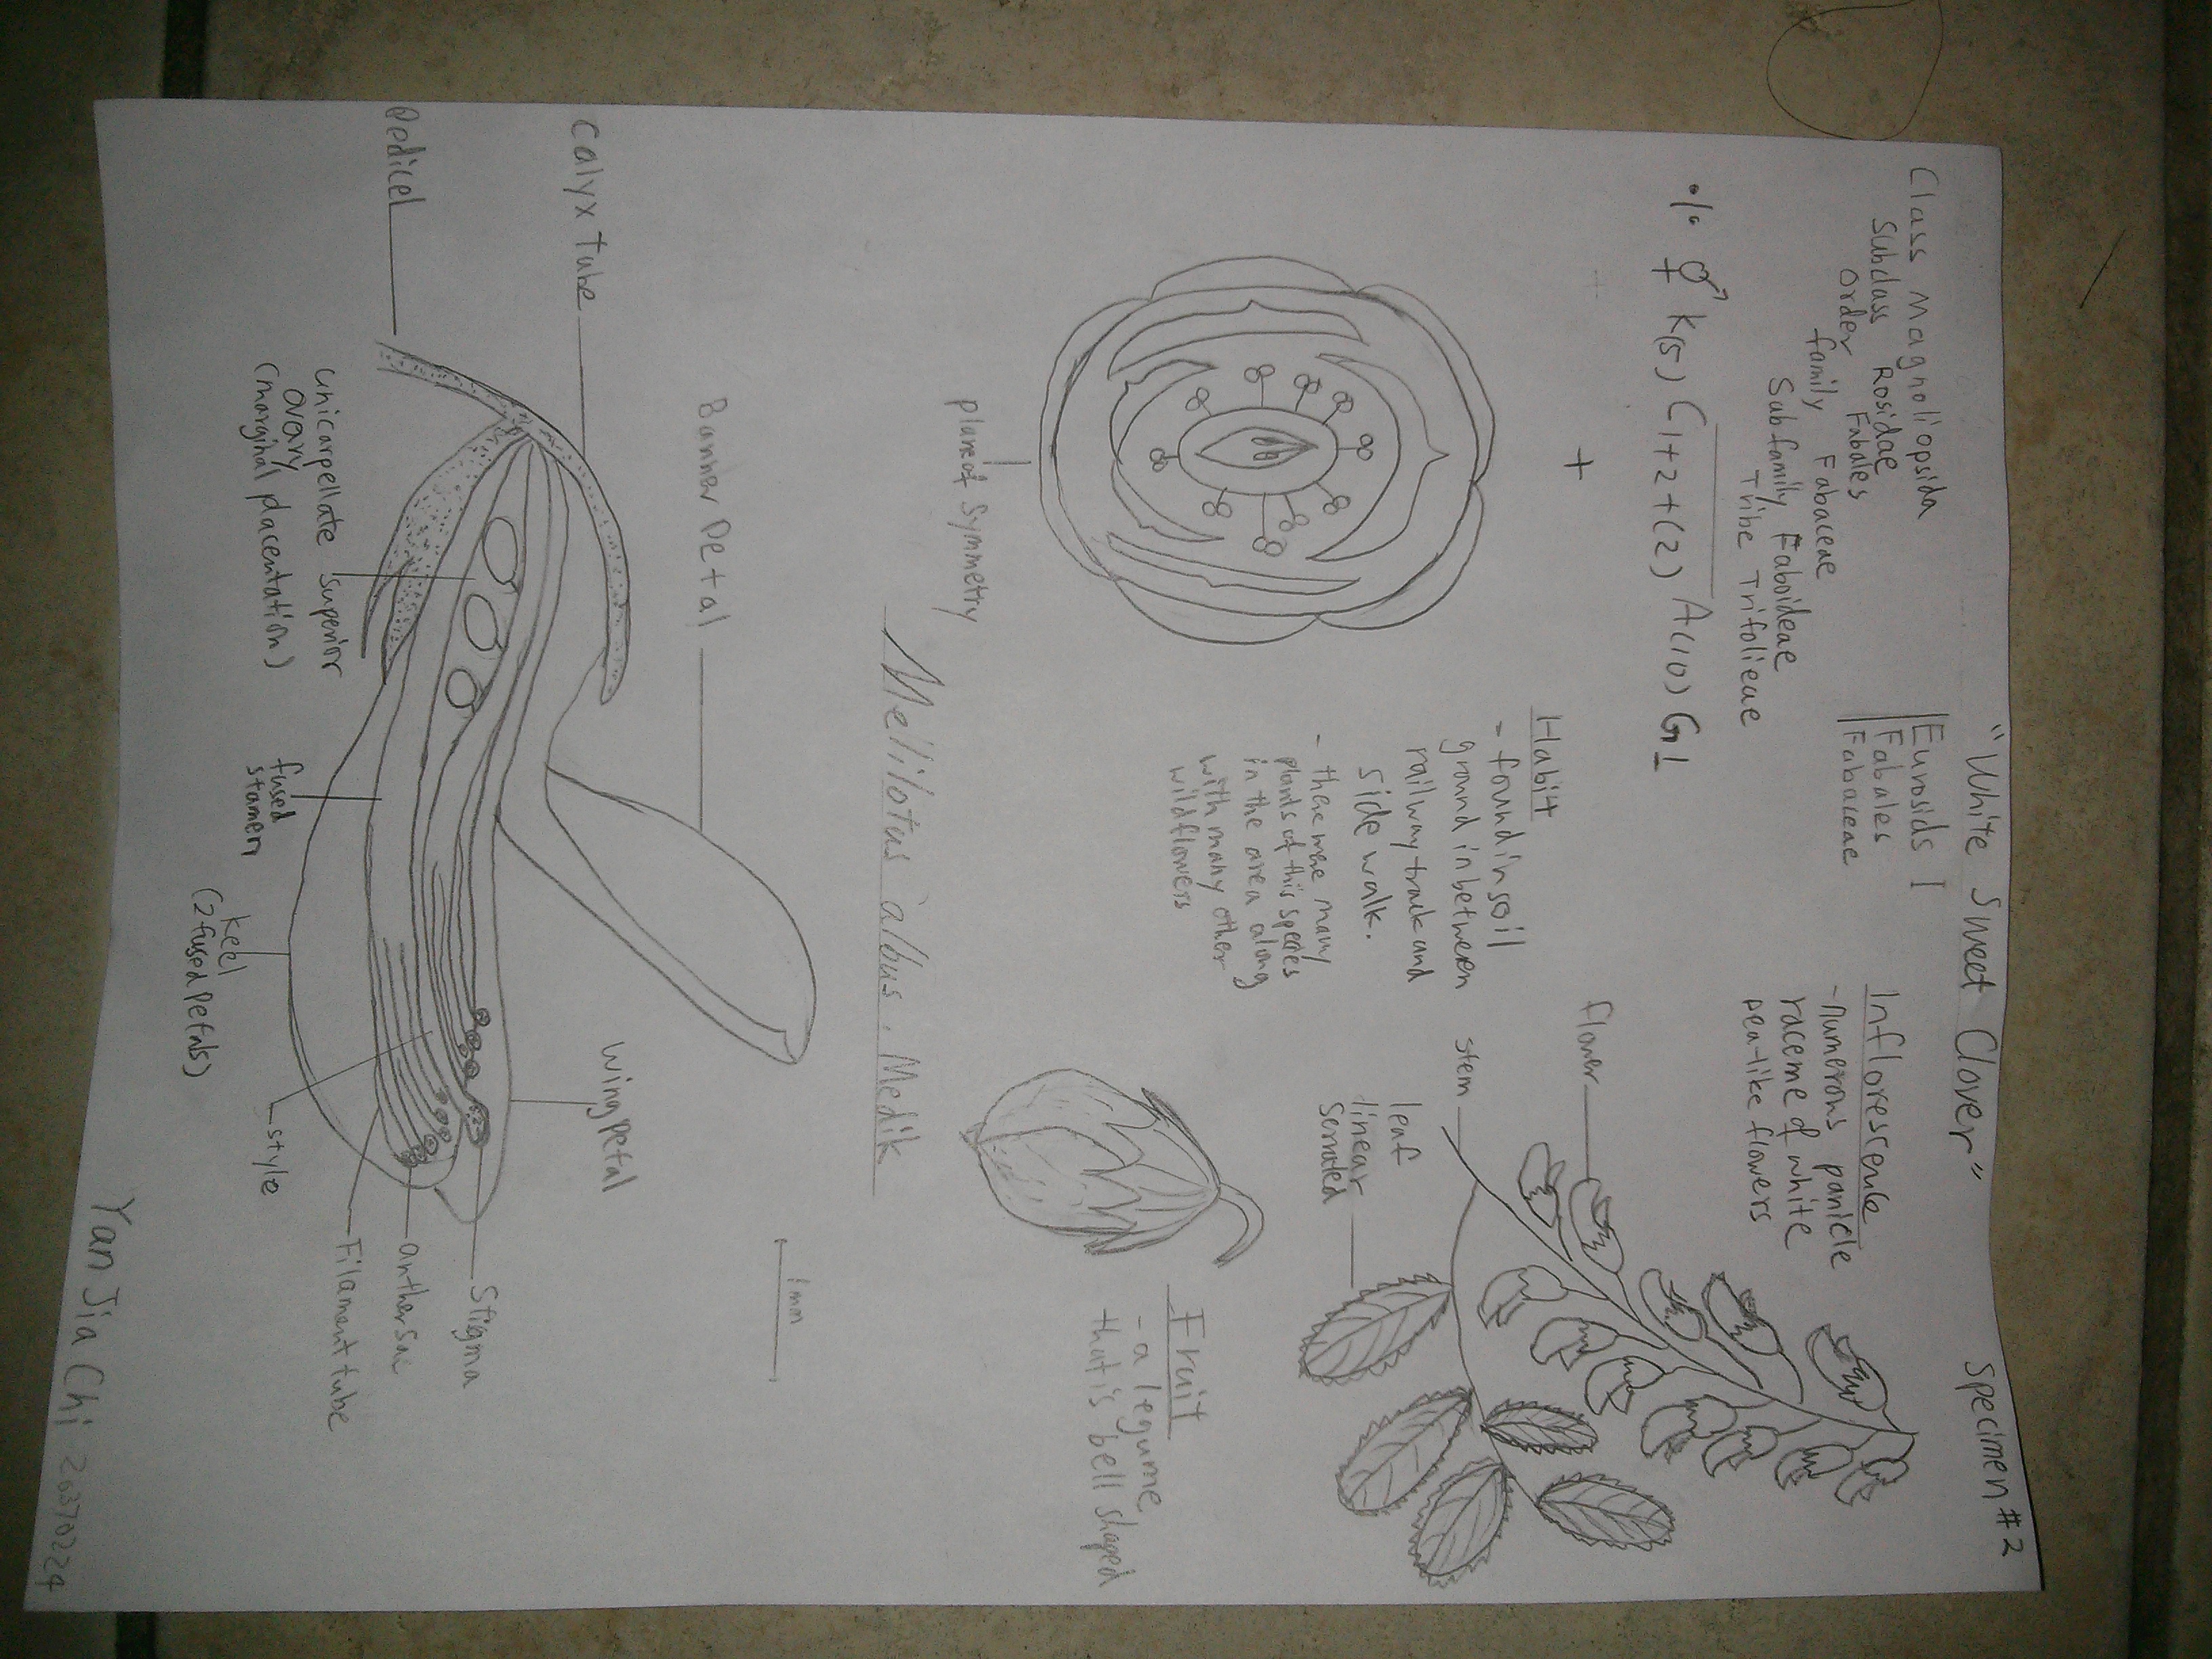 "White Sweet Clover"
Specimen #2
Class Magnoliopsida
Subclass Rosidae
Order Fabales
family Fabaceae
Subfamily Faboideae
Tribe Trifolieae
Eurosids I
Fabales
Fabaceae
·/· ⚥ K(5) C1+2+(2) A(10) G1
+
Inflorescence
- numerous panicle
raceme of white
pea-like flowers
Habit
- found in soil
ground in between
railway track and
side walk.
- there were many
plants of this species
in the area along
with many other
wildflowers
flower
stem
leaf
linear
serrated
plane of Symmetry
Fruit
- a legume
that is bell shaped
Melilotus albus. Medik
1mm
Banner Petal
Calyx Tube
Pedicel
Wing Petal
Unicarpellate superior
ovary
(marginal placentation)
fused
stamen
keel
(2 fused Petals)
style
Stigma
anther sac
Filament tube
Yan Jia Chi 20370224